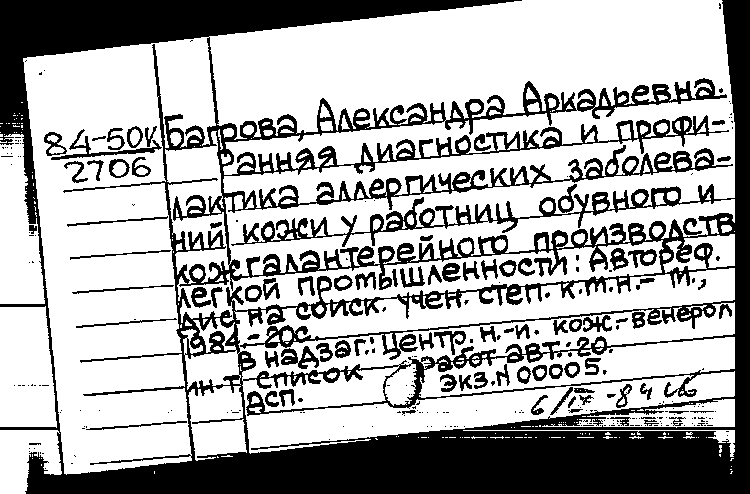 84-50К Багрова, Александра Аркадьевна.
2706 Ранняя диагностика и профи-
лактика аллергических заболева-
ний кожи у работниц обувного и
кожгалантерейного производств
легкой промышленности: Автореф.
дис. на соиск. учен. степ. к.м.н.- М.,
1984.-20с.
В надзаг.: Центр. н.-и. кож.-венерол
ин-т. Список работ авт.: 20.
ДСП. Экз. N 00005.
6/IX -84